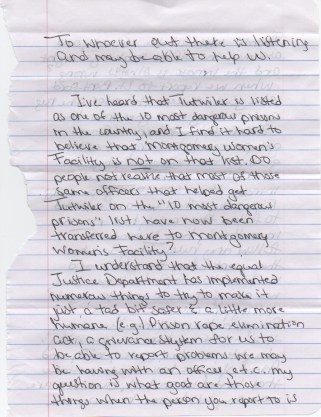 To whoever out there is listening
and may be able to help us.
I've heard that Tutwiler is listed
as one of the 10 most dangerous prisons
in the country, and I find it hard to
believe that Montgomery Women's
Facility is not on that list. Do
people not realize that most of those
same officers that helped get
Tutwiler on the "10 most dangerous
prisons" list have now been
transferred here to Montgomery
Women's Facility?
I understand that the equal
Justice Department has implemented
numerous things to try to make it
just a tad bit safer & a little more
humane (e.g.) Prison rape elimination
act, a grievance system for us to
be able to report problems we may
be having with an officer, etc. my
question is what good are those
things when the person you report to is